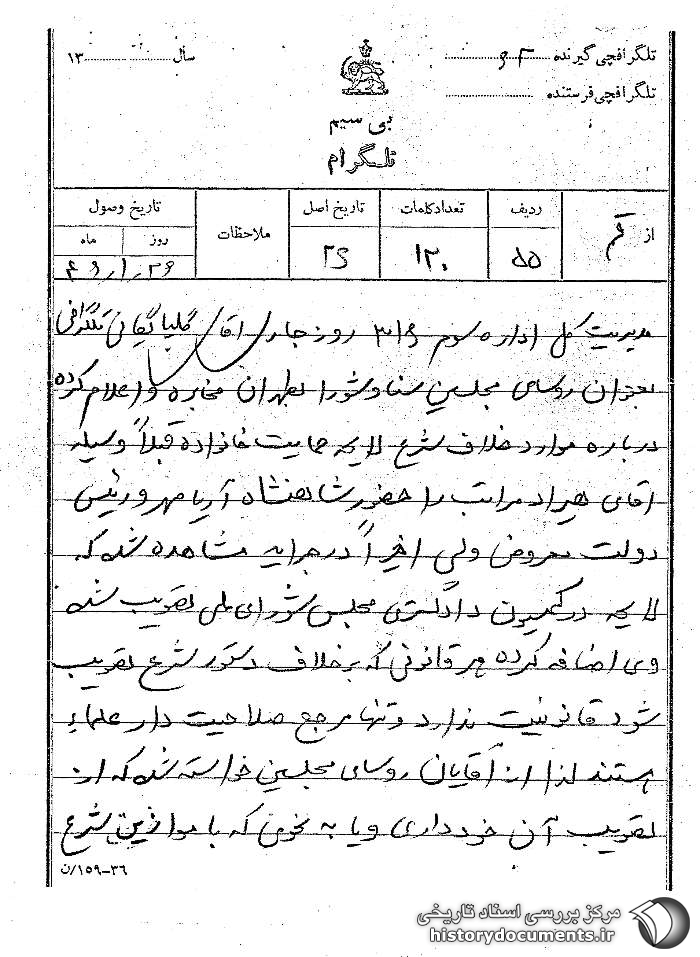 تلگرافچی گیرنده
سال ۱۳
تلگرافچی فرستنده
بی سیم
تلگرام
از قم
ردیف
تعداد کلمات
تاریخ اصل
ملاحظات
تاریخ وصول
روز
ماه
۵۵
۱۲۰
۲۶
مدیریت کل اداره سوم ۳۱۶ روز جاری آقای گلپایگانی تلگرافی
بعنوان روسای مجلسین سنا و شورا بطهران مخابره و اعلام کرده
درباره موارد خلاف شرع لایحه حمایت خانواده قبلاً وسیله
آقای هیراد مراتب را حضور شاهنشاه آریامهر و رئیس
دولت معروض ولی اخیراً در جراید مشاهده شد که
لایحه در کمیسیون دادگستری مجلس شورای ملی تصویب شده
وی اضافه کرده هر قانونی که برخلاف دستور شرع تصویب
شود قانونیت ندارد و تنها مرجع صلاحیت دار علماء
هستند لذا از آقایان روسای مجلسین خواسته شد که از
تصویب آن خودداری و یا به نحوی که با موازین شرع
۳۶-۱۵۹/ن
مرکز بررسی اسناد تاریخی
historydocuments.ir